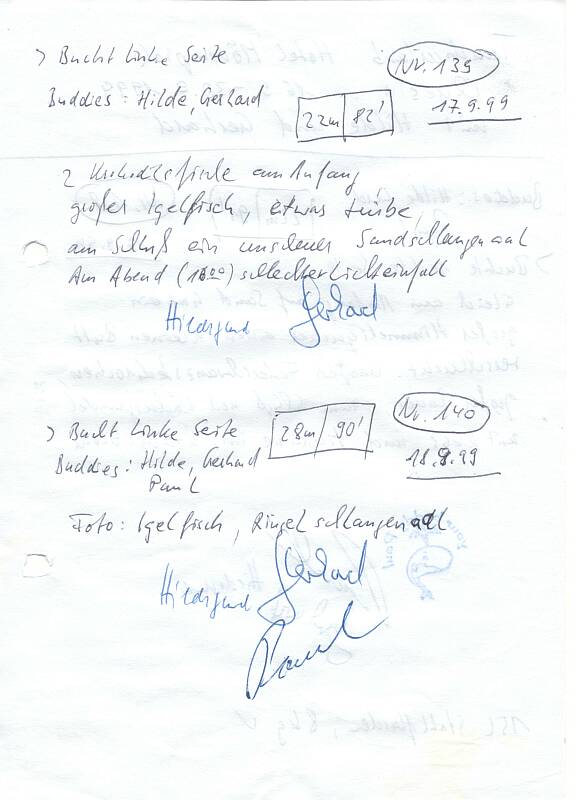 > Bucht linke Seite
Nr. 139
Buddies: Hilde, Gerhard
22m 82'
17.9.99
2 Krokodilsfische am Anfang
großer Igelfisch, etwas trübe,
am Schluß ein Sandschlangenaal
Am Abend (18⁰⁰) schlechter Lichteinfall
Hildegund Gerhard
Nr. 140
> Bucht linke Seite
28m 90'
18.9.99
Buddies: Hilde, Gerhard
Paul
Foto: Igelfisch, Ringelschlangenaal
Hildegund Gerhard
Paul
15L Stahlflasche, 8 kg